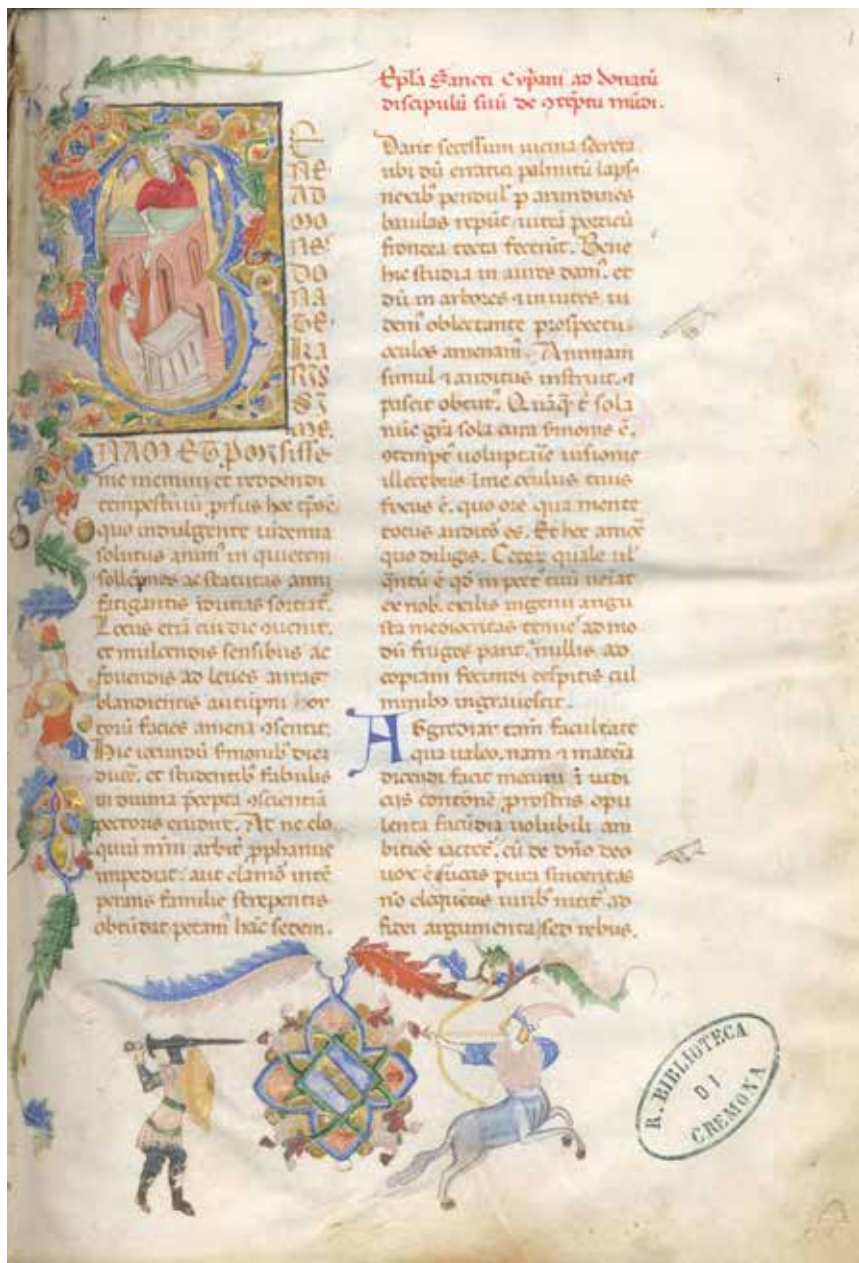 Epl̃a Sancti Cyp̃ani ad donatũ
discipulũ suũ de ꝯteptu mũdi.
B
E
NE·
AD
MO
NES
DO
NA
TE·
KA
RIS
SI
ME.
NAM ET, PONSISSE
me memini et reddendi
tempestiuũ prsus hoc tp̃s ẽ
quo indulgente uidemia
solutus anim̃ in quietem
sollẽpnes ac statutas anni
fatigantis iducias sortiat̃.
Locus etiã cũ die ꝯuenit.
et mulcendis sensibus ac
fouendis ad leues auras
blandientis autũpni hor
torũ facies amena ꝯsentit.
Hic iocundũ ẽmonib; diez
ducẽ. et studentib; fabulis
in diuina p̃cepta ꝯscientiã
pectoris erudire. At ne elo
quiũ nr̃m arbit̃ pphanus
impediat. aut clamõ inte
perans familie strepentis
obtũdat petam̃ hãc sedem.
Dant secessum uicina secreta
ubi dũ erratici palmitũ laps;
nexib; pendul̃ p arundines
baiulas repũt. uiteã porticũ
frondea tecta fecerũt. Bene
hic studia in aures dam̃. et
dũ in arbores ⁊ in uites ui
dem̃ oblectante prospectu
oculos amenam̃. Animam
simul ⁊ auditus instruit. ⁊
pascit obtut̃. Quãq̃ ẽ sola
nũc gr̃a sola cura s̃monis ẽ.
ꝯtempt̃ uoluptarie uisionis
illecebris ĩ me oculus tuus
fixus ẽ. quo ore qua mente
totus auditõ es. Et hoc amoẽ
quo diligis. Ceteꝝ quale ul̃
q̃ntũ ẽ qđ in pect̃ tuũ ueniat
ex nob̃. exilis ingenii angu
sta mediocritas tenues ad mo
dũ fruges parit. nullis ad
copiam fecundi cespitis cul
minib; ingrauescit.
Aggrediar tam̃ facultate
qua ualeo. nam ⁊ materia
dicendi facit mecum ĩ iudi
ciis contiõne prostris opu
lenta facũdia uolubili am
bitiõe iactet̃. cũ de dñõ deo
uox ẽ fucais pura sinceritas
nõ eloquẽtie uirib; nitit̃ ad
fidei argumenta sed rebus.
R. BIBLIOTECA
DI
CREMONA